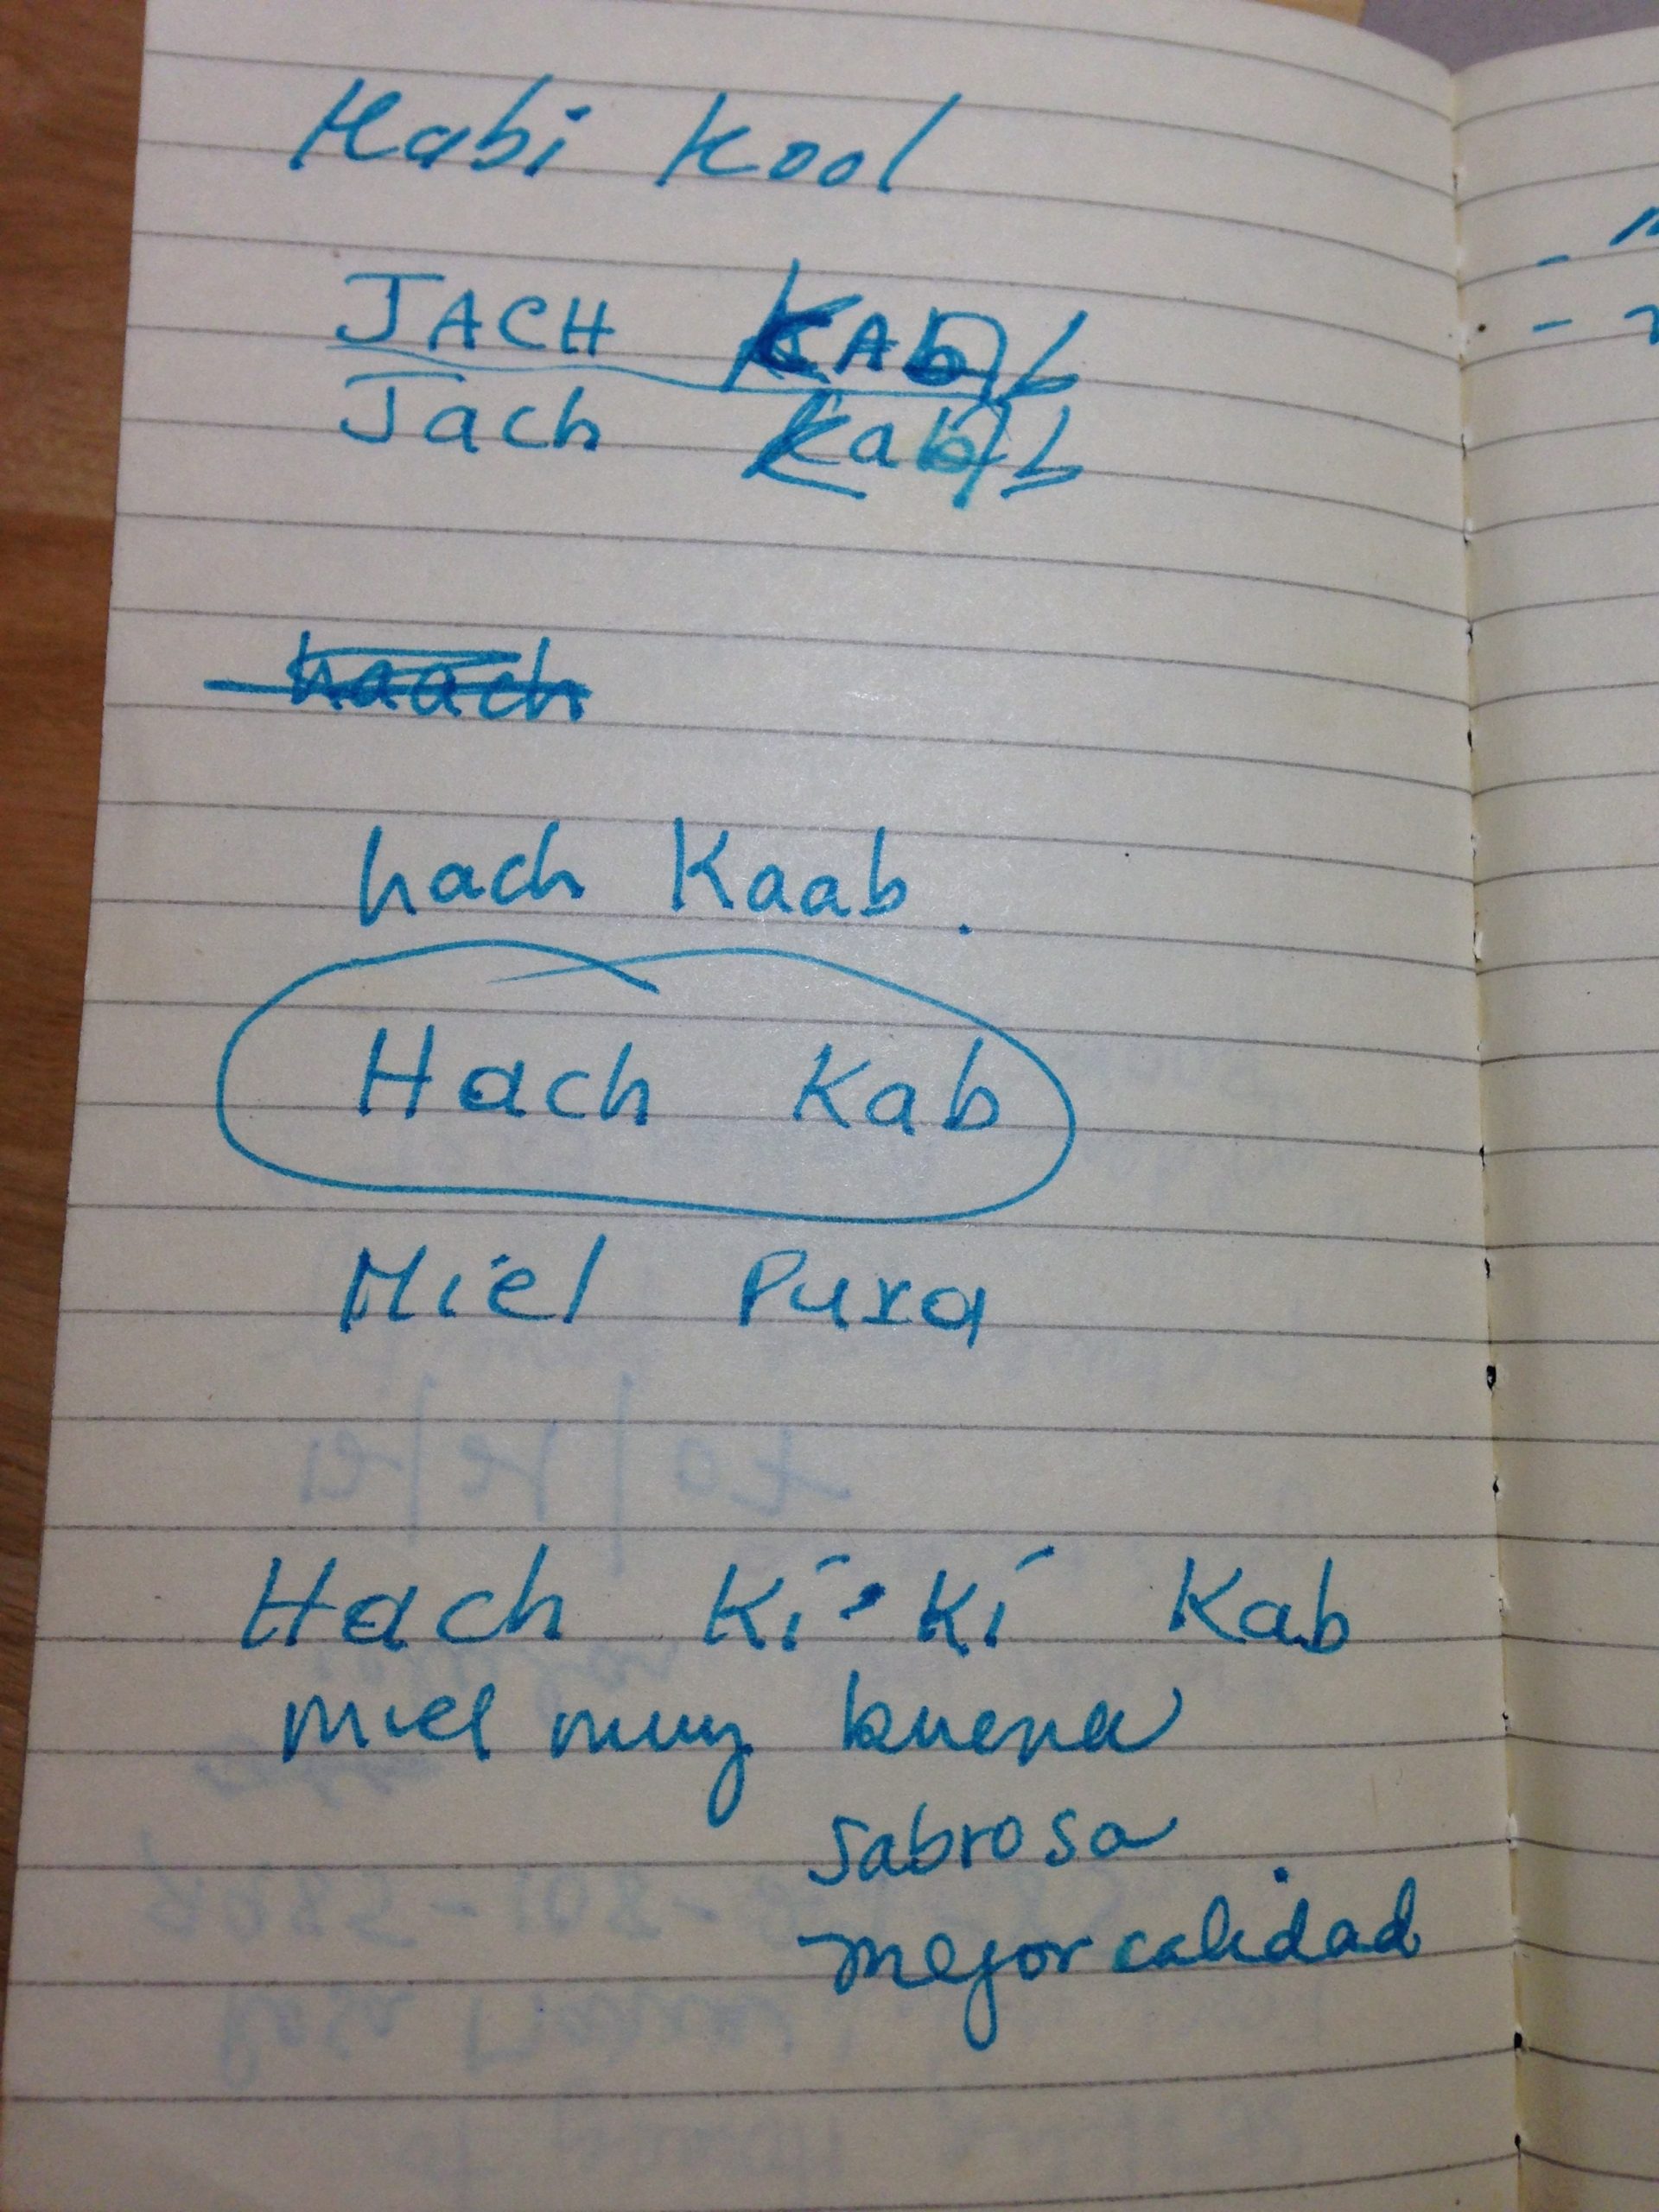 Habi Kool
JACH KAb b
Jach Kab b
haach
hach Kaab.
Hach Kab
Miel Pura
Hach Kí-Kí Kab
miel muy buena
sabrosa
mejor calidad